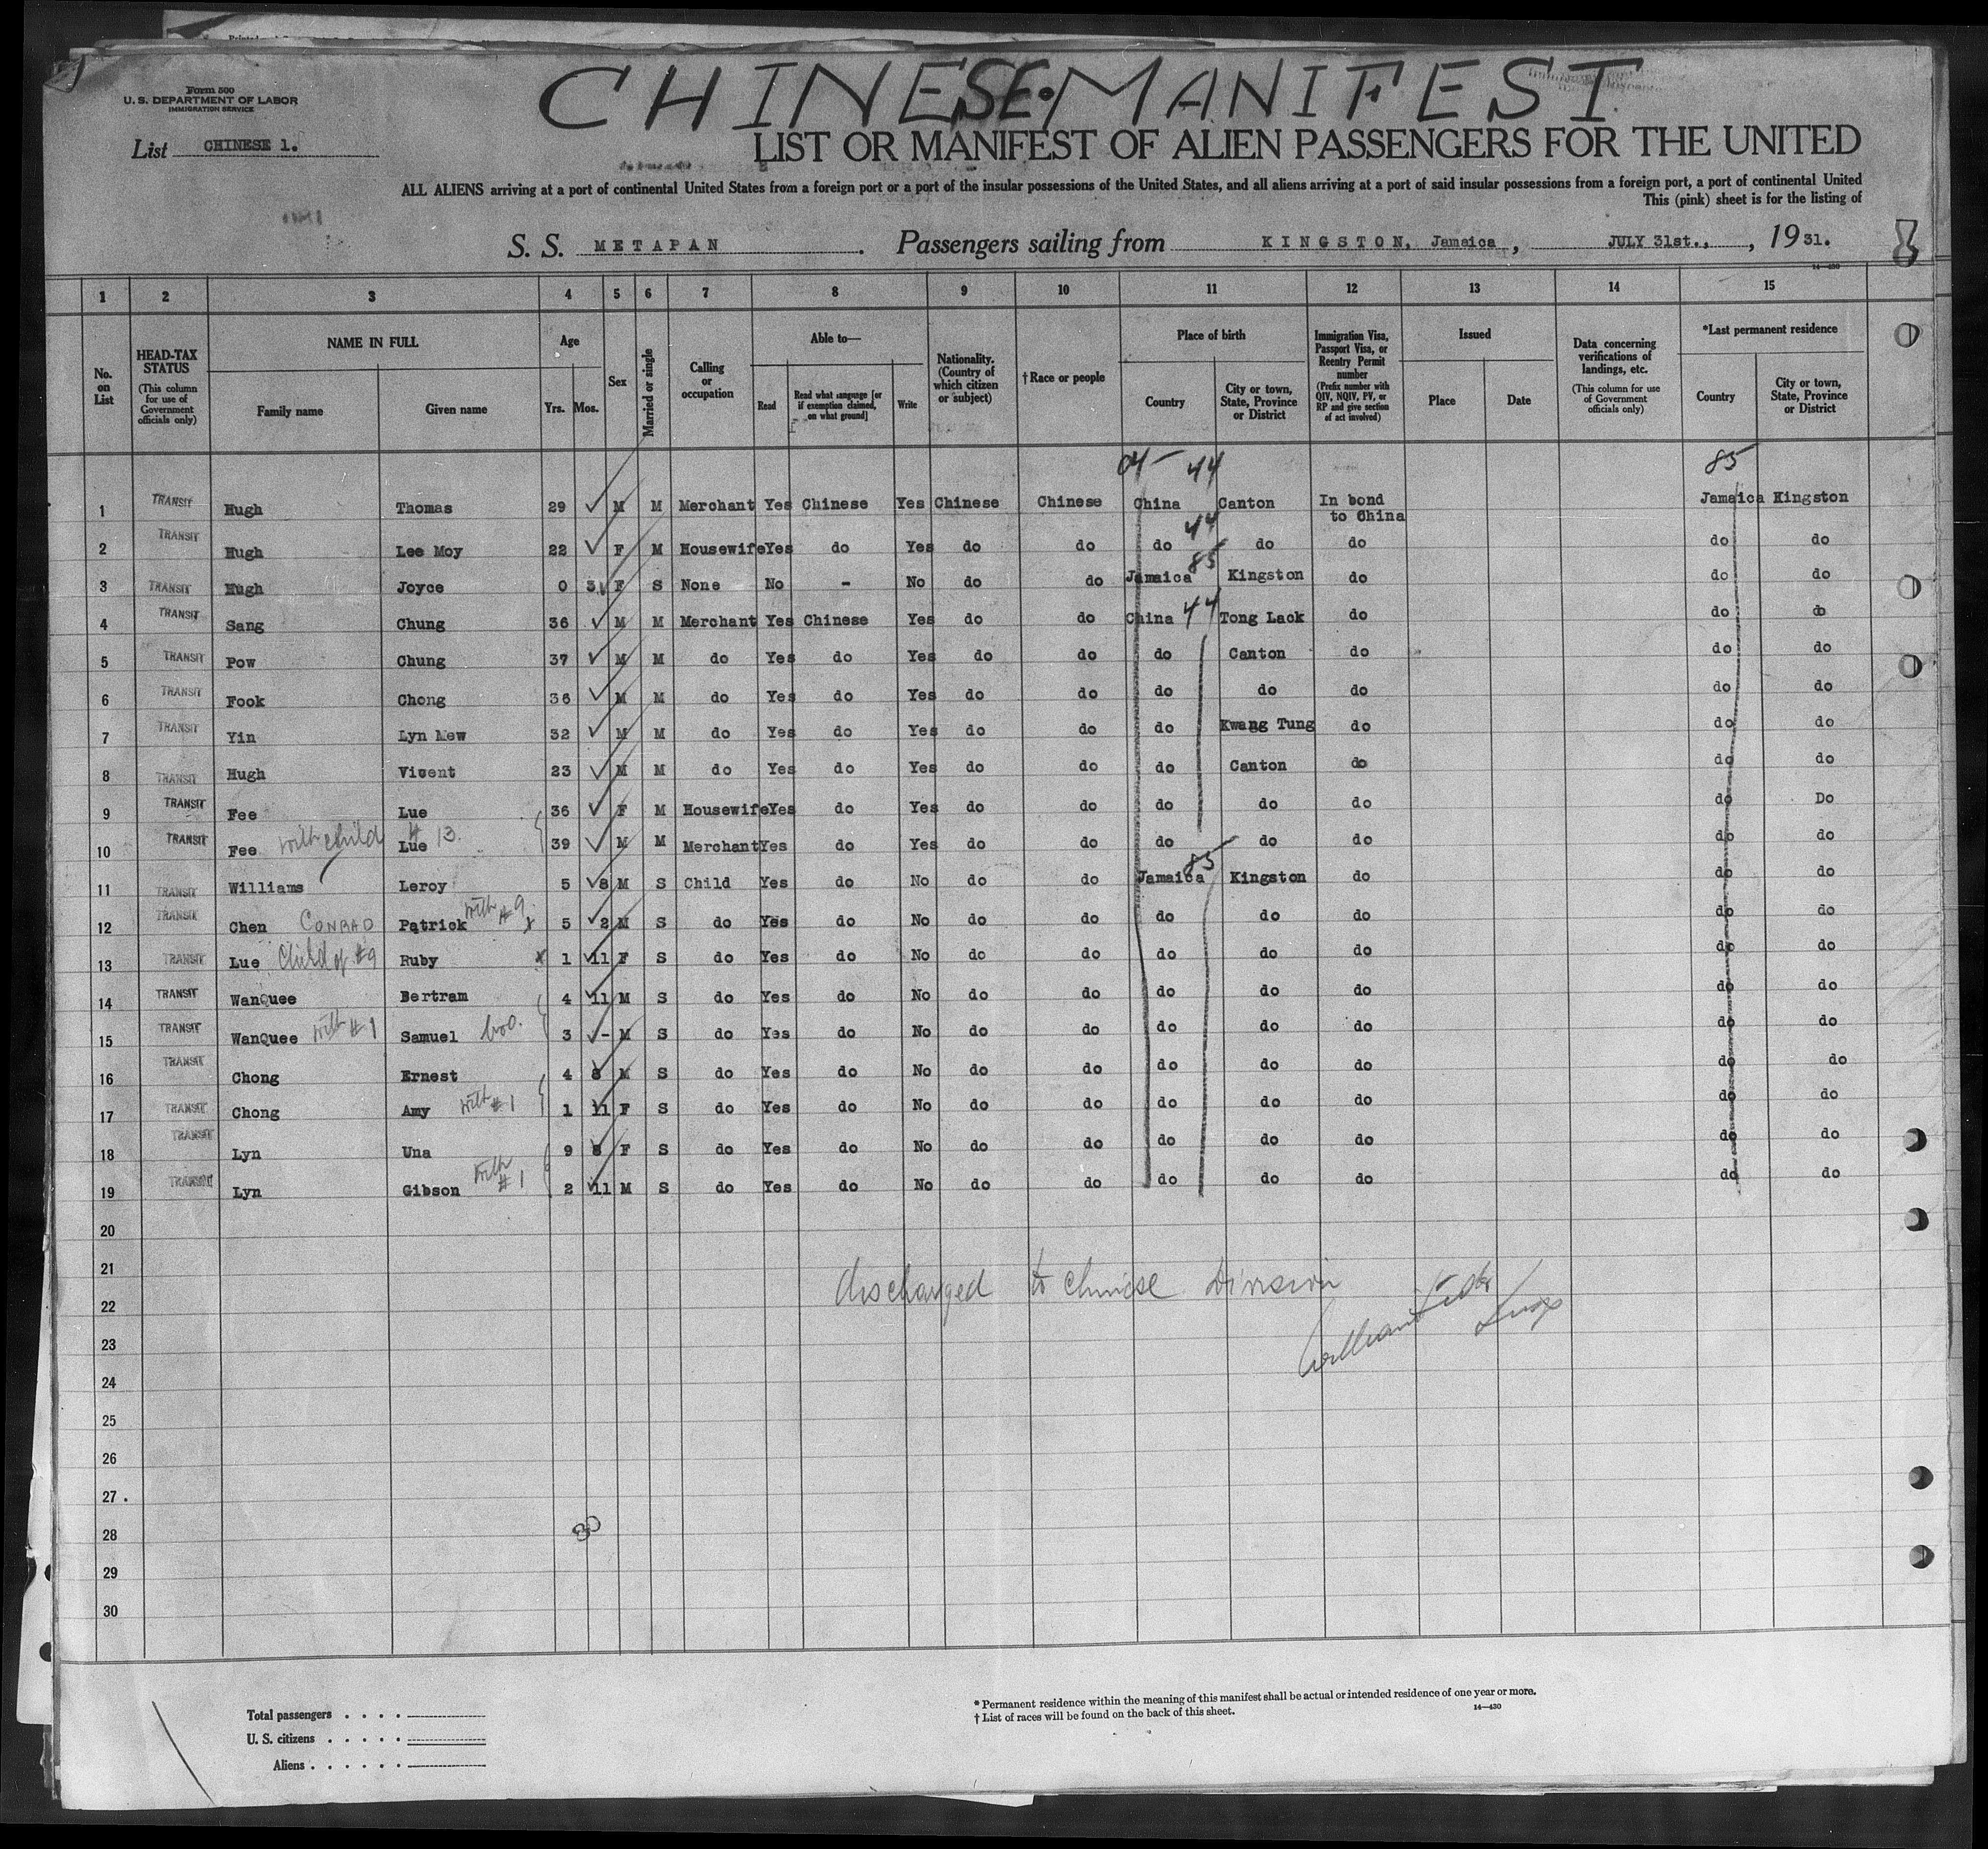 CHINESE MANIFEST
Form 500
U. S. DEPARTMENT OF LABOR
IMMIGRATION SERVICE
List CHINESE 1.
LIST OR MANIFEST OF ALIEN PASSENGERS FOR THE UNITED
ALL ALIENS arriving at a port of continental United States from a foreign port or a port of the insular possessions of the United States, and all aliens arriving at a port of said insular possessions from a foreign port, a port of continental United
This (pink) sheet is for the listing of
S. S. METAPAN. Passengers sailing from KINGSTON, Jamaica, JULY 31st., , 1931.
14—430
1 2 3 4 5 6 7 8 9 10 11 12 13 14 15
No. on List
HEAD-TAX STATUS (This column for use of Government officials only)
NAME IN FULL Family name Given name
Age Yrs. Mos.
Sex
Married or single
Calling or occupation
Able to— Read Read what language [or if exemption claimed, on what ground] Write
Nationality. (Country of which citizen or subject)
†Race or people
Place of birth Country City or town, State, Province or District
Immigration Visa, Passport Visa, or Reentry Permit number (Prefix number with QIV, NQIV, PV, or RP and give section of act involved)
Issued Place Date
Data concerning verifications of landings, etc. (This column for use of Government officials only)
*Last permanent residence Country City or town, State, Province or District
04— 44 85
1 TRANSIT Hugh Thomas 29 M M Merchant Yes Chinese Yes Chinese Chinese China Canton In bond to China Jamaica Kingston
44
2 TRANSIT Hugh Lee Moy 22 F M Housewife Yes do Yes do do do do do do do
85
3 TRANSIT Hugh Joyce 0 3 F S None No - No do do Jamaica Kingston do do do
4 TRANSIT Sang Chung 36 M M Merchant Yes Chinese Yes do do China 44 Tong Lack do do do
5 TRANSIT Pow Chung 37 M M do Yes do Yes do do do Canton do do do
6 TRANSIT Fook Chong 36 M M do Yes do Yes do do do do do do do
7 TRANSIT Yin Lyn Mew 32 M M do Yes do Yes do do do Kwang Tung do do do
8 TRANSIT Hugh Vicent 23 M M do Yes do Yes do do do Canton do do do
9 TRANSIT Fee Lue 36 F M Housewife Yes do Yes do do do do do do Do
10 TRANSIT Fee with child Lue # 13. 39 M M Merchant Yes do Yes do do do do do do do
85
11 TRANSIT Williams Leroy 5 8 M S Child Yes do No do do Jamaica Kingston do do do
12 TRANSIT Chen CONRAD Patrick with #9. x 5 2 M S do Yes do No do do do do do do do
13 TRANSIT Lue Child of #9 Ruby x 1 11 F S do Yes do No do do do do do do do
14 TRANSIT WanQuee Bertram 4 11 M S do Yes do No do do do do do do do
15 TRANSIT WanQuee with #1 Samuel bro. 3 - M S do Yes do No do do do do do do do
16 TRANSIT Chong Ernest 4 8 M S do Yes do No do do do do do do do
17 TRANSIT Chong Amy with #1 1 11 F S do Yes do No do do do do do do do
18 TRANSIT Lyn Una 9 8 F S do Yes do No do do do do do do do
19 TRANSIT Lyn Gibson with #1 2 11 M S do Yes do No do do do do do do do
20
21
discharged to chinese Division
22
23
24
25
26
27
28
30
29
30
Total passengers
U. S. citizens
Aliens
* Permanent residence within the meaning of this manifest shall be actual or intended residence of one year or more.
† List of races will be found on the back of this sheet.
14—430